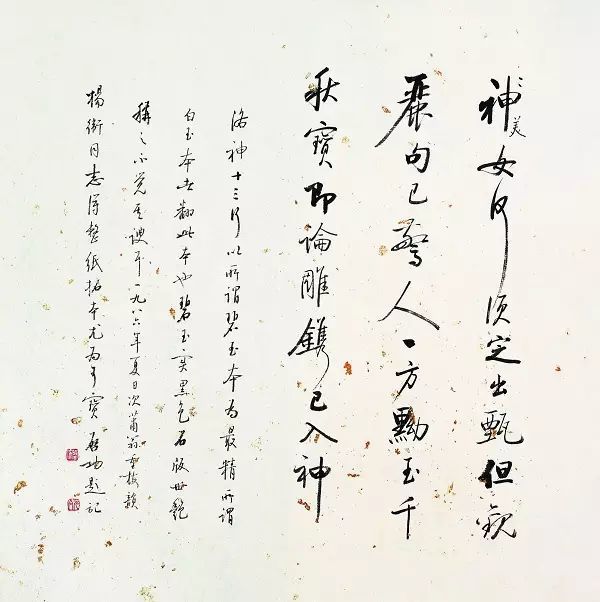 神女何須定出甄但觀
美
麗句已驚人一方黝玉千
秋寶即論雕鐫已入神
洛神十三行以所謂碧玉本為最精所謂
白玉本者翻此本也碧玉實黑色石版世艷
稱之不覺其諛耳一九八六年夏日次蕭翁韻
楊衛同志得整紙拓本尤為可寶啓功題記